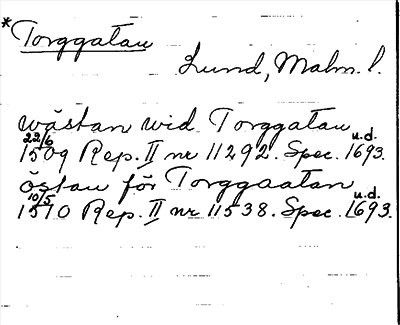 *Torggatan
Lund, Malm. l.
wästan wid Torggatan
22/6 1509 Rep. II nr 11292. Spec. u.d. 1693.
östan för Torggaatan
10/5 1510 Rep. II nr 11538. Spec. u.d. 1693.